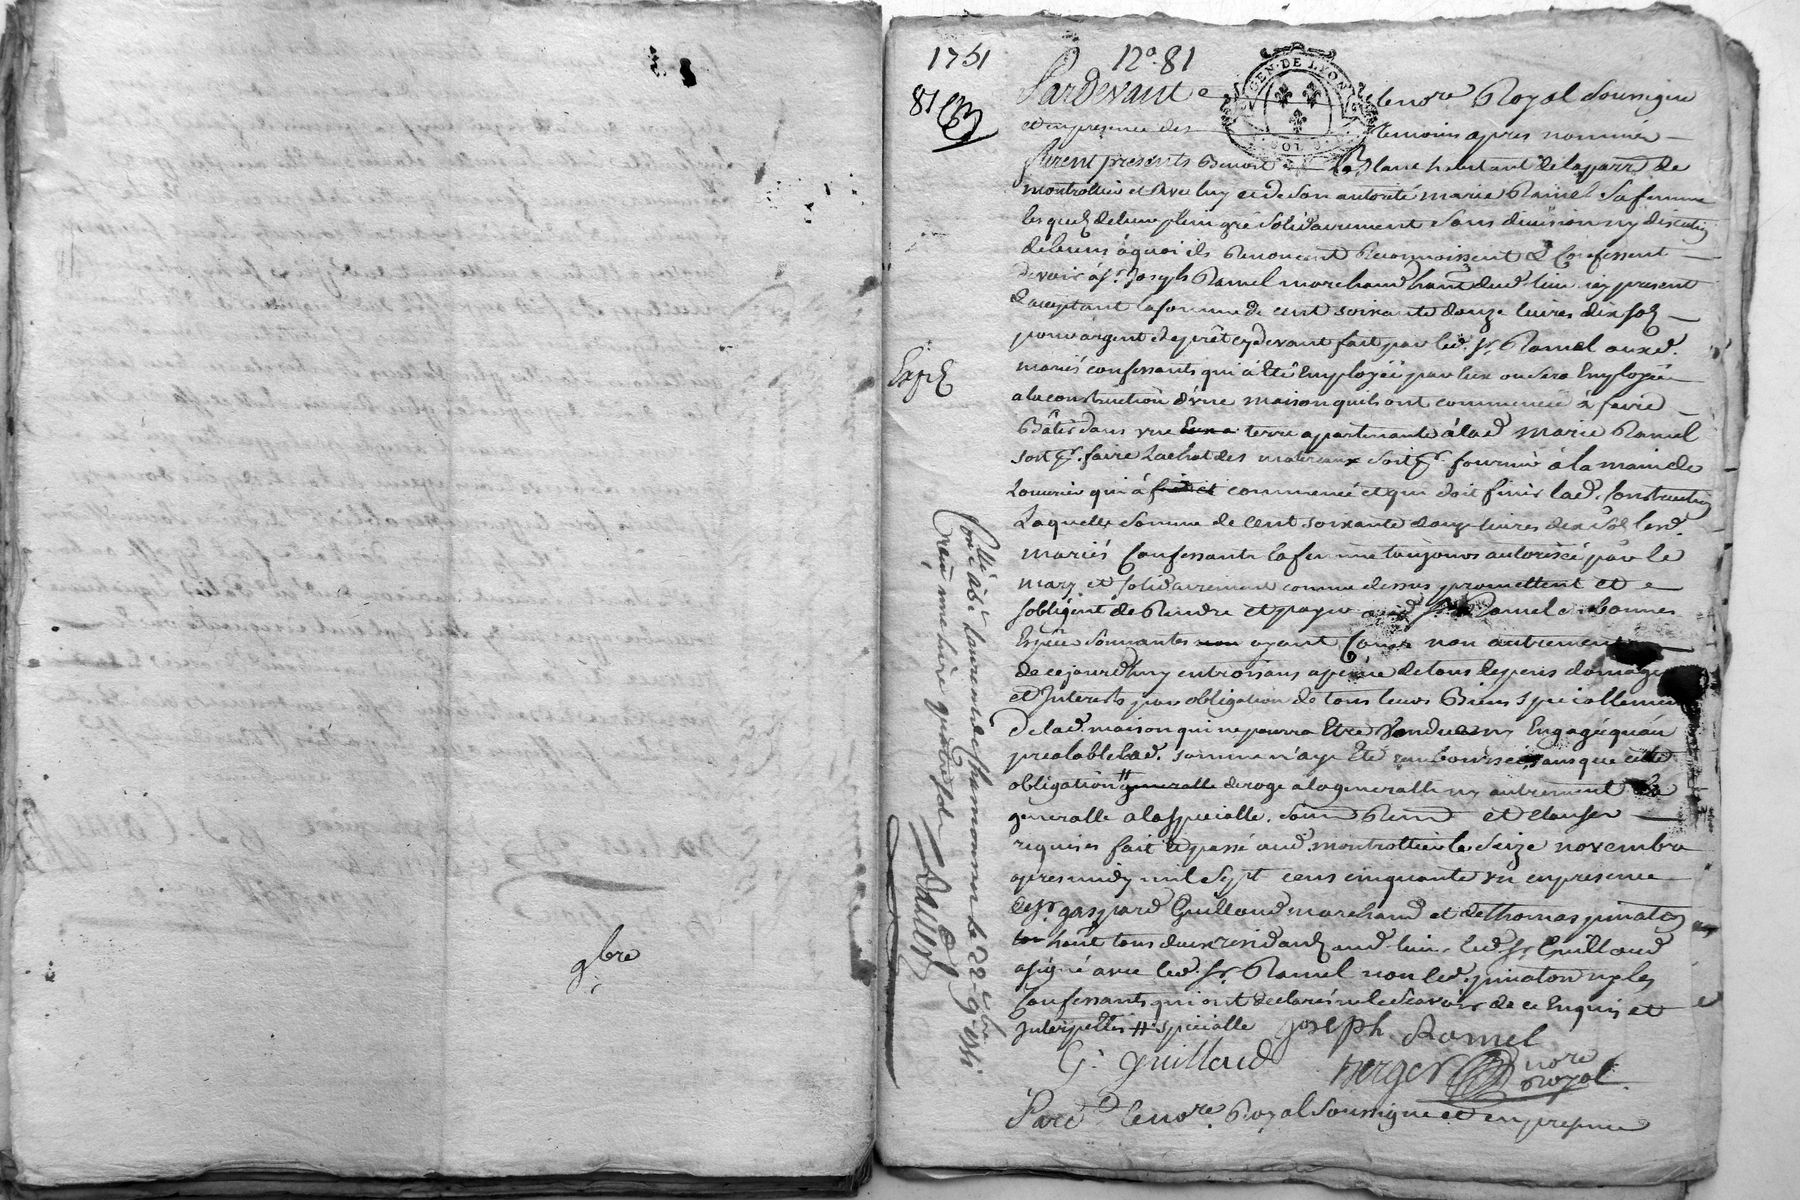 9bre
1751
12e 81
81
GEN. DE LYON
Pardevant le nore Royal Soussigné
et en presence des temoins apres nommés
furent presents Benoit Blanc habitant de la parr. de
montrottier et avec luy et de son autorité marie Ramel sa femme
lesquels de leur plein gré solidairement sans division ny discution
de biens à quoi ils Renoncent Reconnoissent & Confessent
devoir à sr. Joseph Ramel marchand hant dud. lieu icy present
& acceptant la somme de cent soixante douze livres dix sols
pour argent de prêt cy devant fait par led. sr. Ramel auxd.
mariés confessants qui à Eté Employée par Eux ou sera Employée
a la construction d'une maison quils ont commencé a faire
Bâtir dans une terre apartenante à lad. marie Ramel
soit pr. faire Lachat des materiaux soit pr. fournir à la main de
Louvrier qui à commencé et qui doit finir lad. Construction
Laquelle somme de Cent soixante douze livres dix sols lesd.
mariés Confessants la femme toujours autorisée par le
mary et solidairement comme dessus promettent et
sobligent de Rendre et payer aud. sr. Ramel en bonnes
Espece sonnantes ayant Cours non autrement
de cejourdhuy en trois ans a peine de tous depens domages
et Interets par obligation de tous leurs Biens speciallement
de lad. maison qui ne pourra Etre Vendue ny Engagée quau
prealable lad. somme n'aye Eté remboursée sans que cette
obligation # generalle deroge a la generalle ny autrement la
generalle a la specialle. et clauses
requises fait et passé aud. montrottier le seize novembre
apres midy mil sept cens cinquante un en presence
de sr. gaspard Guilloud marchand et de thomas pinaton
hant tous deux residants aud. lieu. led. sr. Guilloud
a signé avec led. sr. Ramel non led. pinaton ny les
Confessants qui ont declaré ne le scavoir de ce Enquis et
Interpellés # specialle Joseph Ramel
G. Guilloud
Berger nore Royal
Pard. le nore. Royal Soussigné et en presence
Expé
Collé à St. Laurent de Chamousset le 22 9bre 1751
Reçu une livre quatre sols